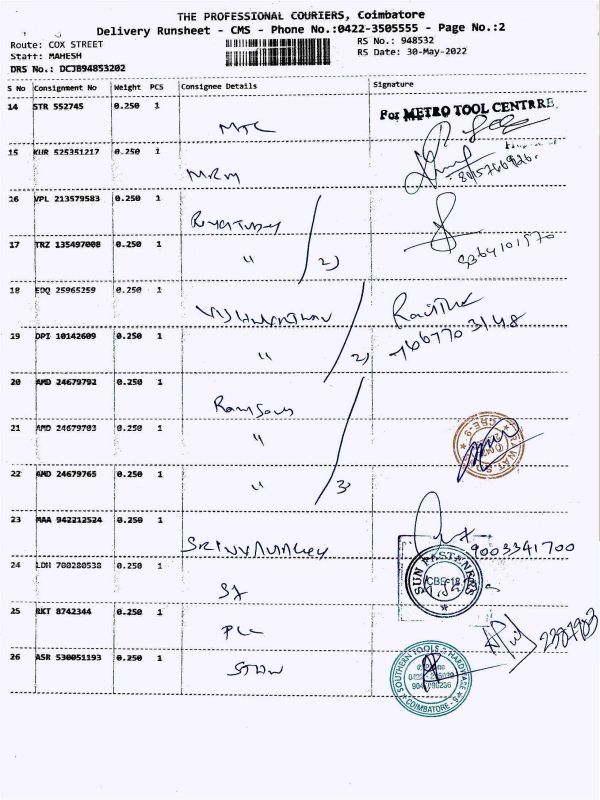 THE PROFESSIONAL COURIERS, Coimbatore
Delivery Runsheet - CMS - Phone No.:0422-3505555 - Page No.:2
Route: COX STREET
Staff: MAHESH
DRS No.: DCJB94853202
RS No.: 948532
RS Date: 30-May-2022
S No Consignment No Weight PCS Consignee Details Signature
14 STR 552745 0.250 1 MTC
For METRO TOOL CENTRRE
15 KUR 525351217 0.250 1 MRM
16 VPL 213579583 0.250 1
9364101570
17 TRZ 135497008 0.250 1 " 2)
18 EDQ 25965259 0.250 1
7667703148
19 DPI 10142609 0.250 1 " 2)
20 AMD 24679792 0.250 1 Ramsons
21 AMD 24679703 0.250 1 "
RAWAT
CBE-9
22 AMD 24679765 0.250 1 " 3
23 MAA 942212524 0.250 1
9003341700
24 LDH 700280538 0.250 1 SF
SUN FASTENERS
CBE-18
25 RKT 8742344 0.250 1
26 ASR 530051193 0.250 1
SOUTHERN TOOLS & HARDWARE
COIMBATORE - 9